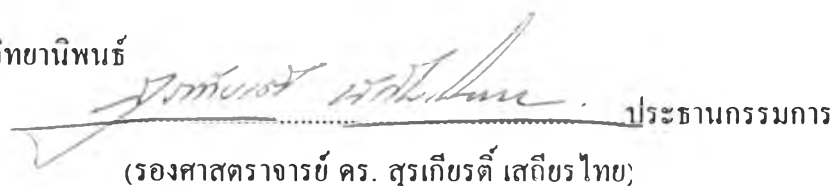 วิทยานิพนธ์
ประธานกรรมการ
(รองศาสตราจารย์ ดร. สุรเกียรติ์ เสถียรไทย)